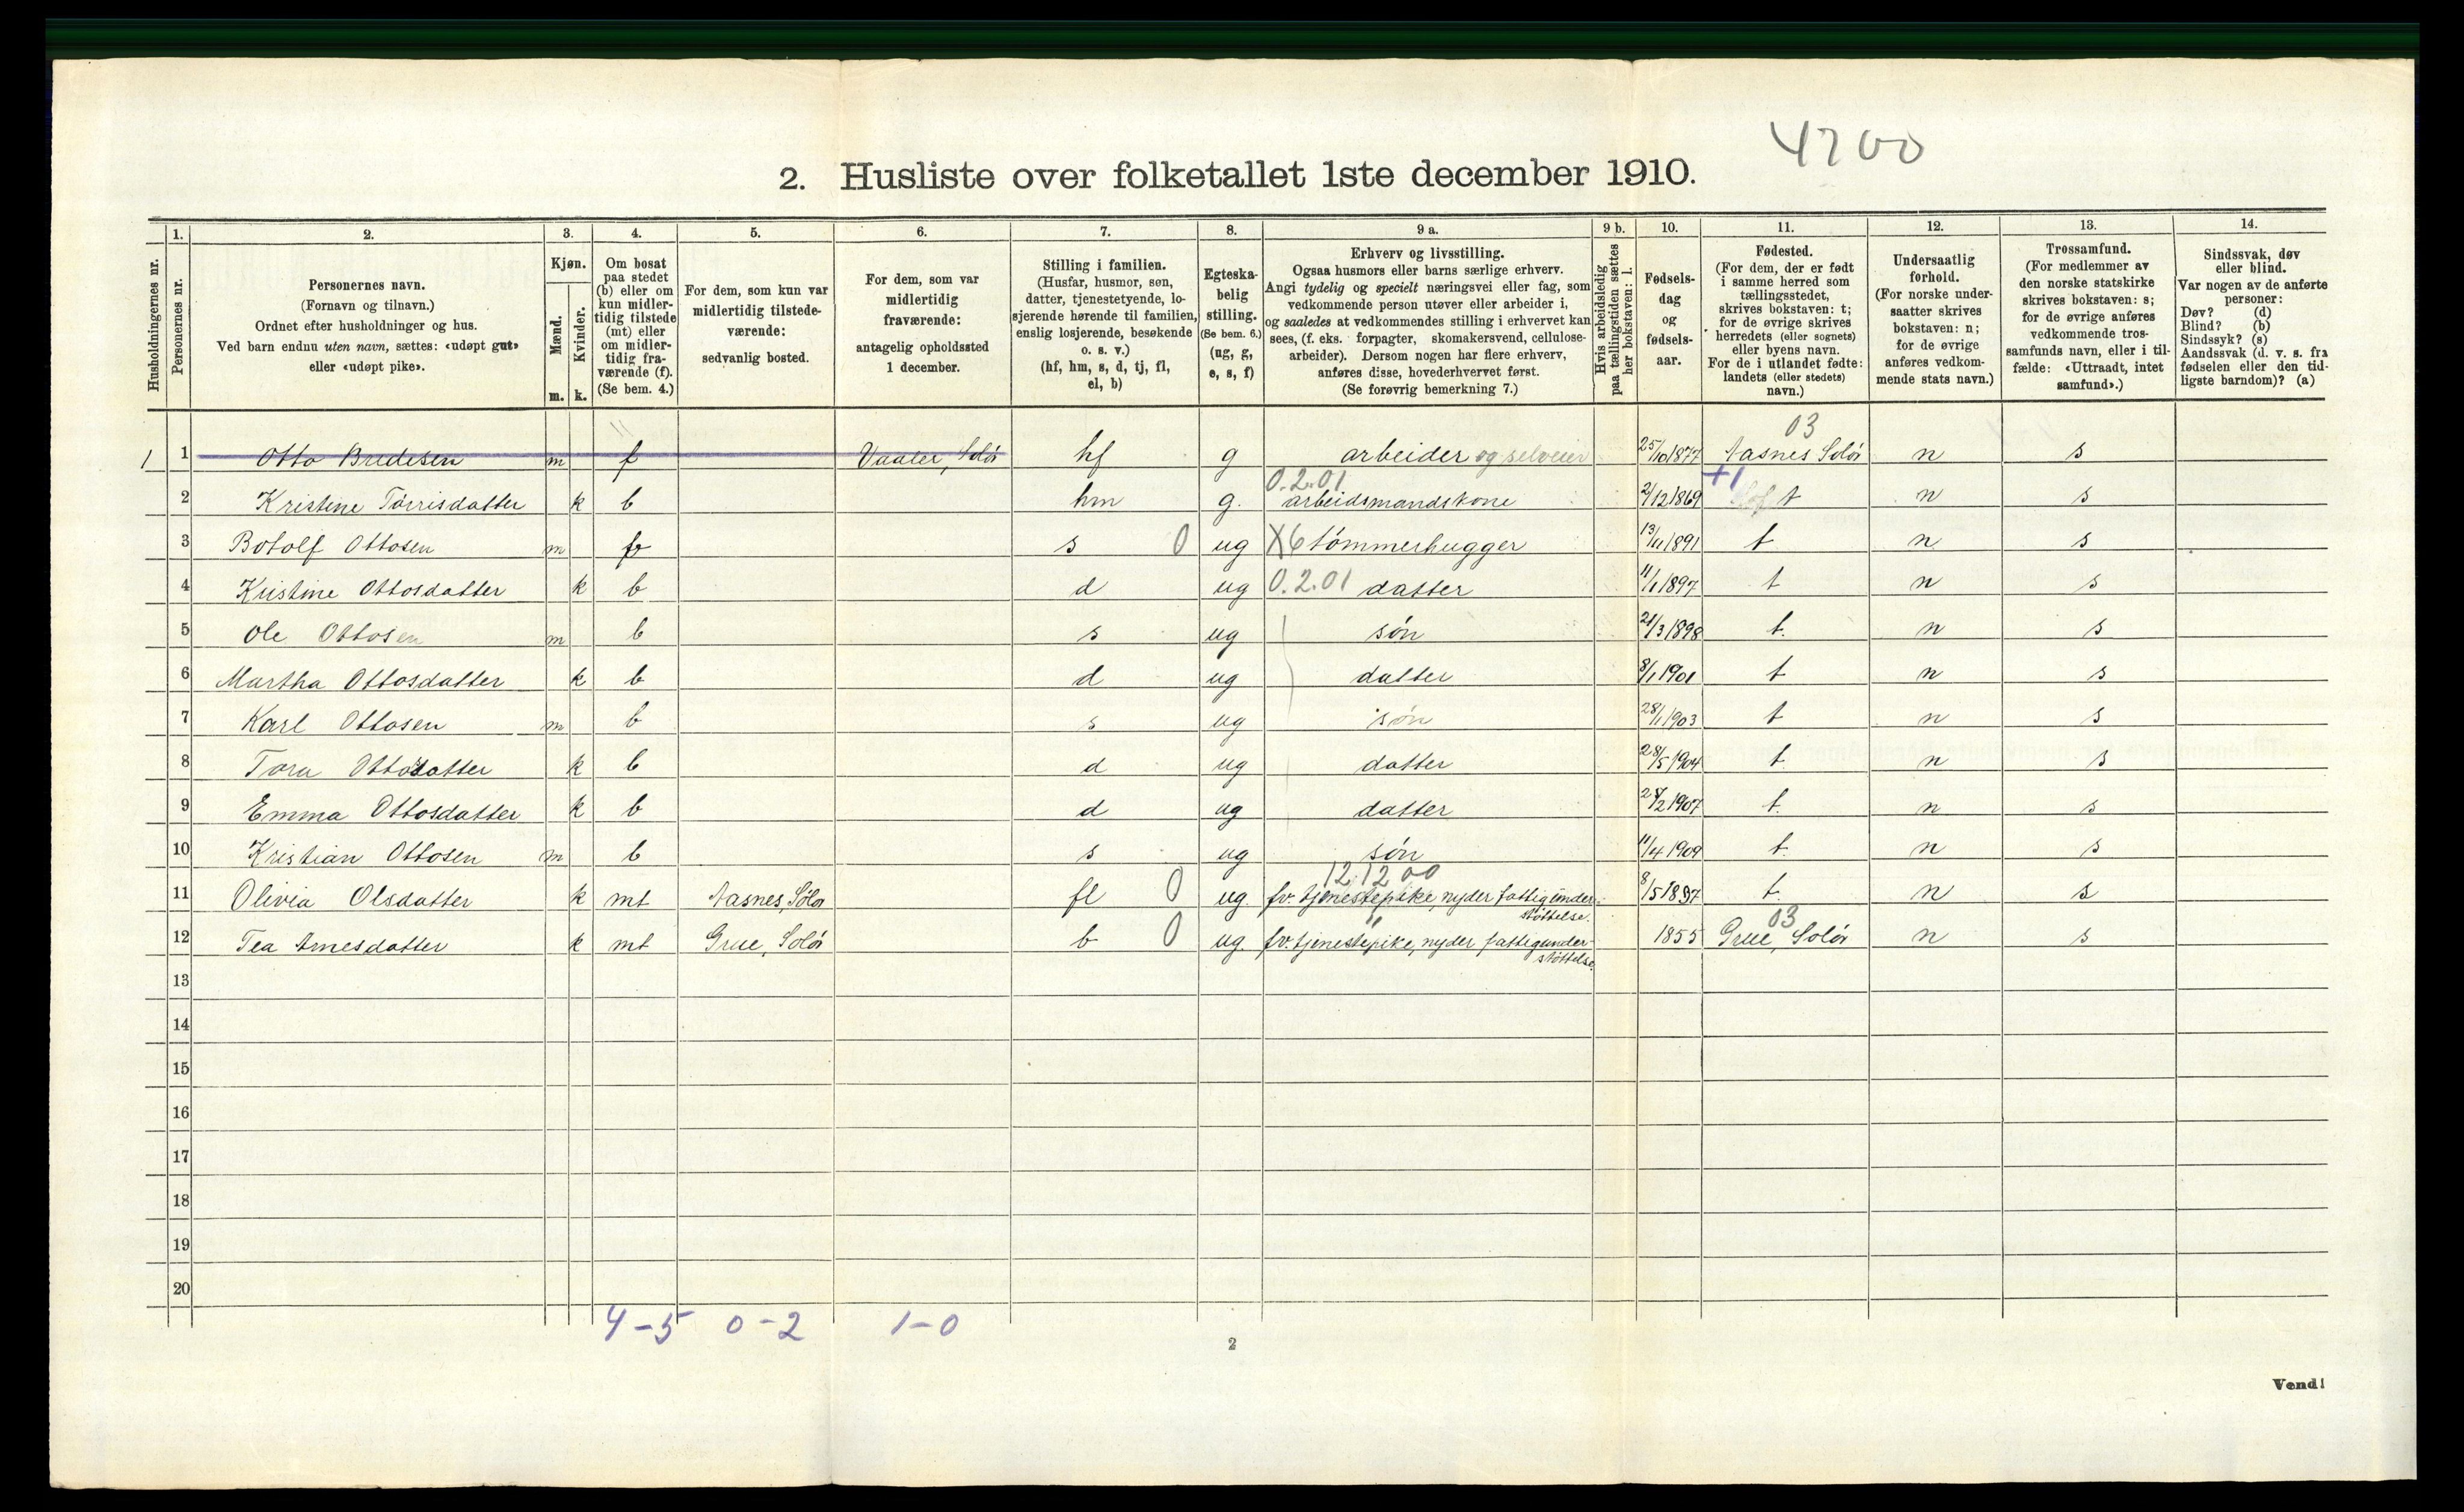 4700
2. Husliste over folketallet 1ste december 1910.
Husholdningernes nr.
1. Personernes nr.
2. Personernes navn.
(Fornavn og tilnavn.)
Ordnet efter husholdninger og hus.
Ved barn endnu uten navn, sættes: «udøpt gut»
eller «udøpt pike».
3. Kjøn.
Mænd. m.
Kvinder. k.
4. Om bosat
paa stedet
(b) eller om
kun midler-
tidig tilstede
(mt) eller
om midler-
tidig fra-
værende (f).
(Se bem. 4.)
5. For dem, som kun var
midlertidig tilstede-
værende:
sedvanlig bosted.
6. For dem, som var
midlertidig
fraværende:
antagelig opholdssted
1 december.
7. Stilling i familien.
(Husfar, husmor, søn,
datter, tjenestetyende, lo-
sjerende hørende til familien,
enslig losjerende, besøkende
o. s. v.)
(hf, hm, s, d, tj, fl,
el, b)
8. Egteska-
belig
stilling.
(Se bem. 6.)
(ug, g,
e, s, f)
9 a. Erhverv og livsstilling.
Ogsaa husmors eller barns særlige erhverv.
Angi tydelig og specielt næringsvei eller fag, som
vedkommende person utøver eller arbeider i,
og saaledes at vedkommendes stilling i erhvervet kan
sees, (f. eks. forpagter, skomakersvend, cellulose-
arbeider). Dersom nogen har flere erhverv,
anføres disse, hovederhvervet først.
(Se forøvrig bemerkning 7.)
9 b. Hvis arbeidsledig
paa tællingstiden sættes
her bokstaven: l.
10. Fødsels-
dag
og
fødsels-
aar.
11. Fødested.
(For dem, der er født
i samme herred som
tællingsstedet,
skrives bokstaven: t;
for de øvrige skrives
herredets (eller sognets)
eller byens navn.
For de i utlandet fødte:
landets (eller stedets)
navn.)
12. Undersaatlig
forhold.
(For norske under-
saatter skrives
bokstaven: n;
for de øvrige
anføres vedkom-
mende stats navn.)
13. Trossamfund.
(For medlemmer av
den norske statskirke
skrives bokstaven: s;
for de øvrige anføres
vedkommende tros-
samfunds navn, eller i til-
fælde: «Uttraadt, intet
samfund».)
14. Sindssvak, døv
eller blind.
Var nogen av de anførte
personer:
Døv? (d)
Blind? (b)
Sindssyk? (s)
Aandssvak (d. v. s. fra
fødselen eller den tid-
ligste barndom)? (a)
03
1 1 Otto Bredesen m f Vaaler, Solør hf g arbeider og selveier 25/10 1877 Aasnes Solør n s
0.2.01 +1
2 Kristine Tørrisdatter k b hm g. arbeidsmandskone 2/12 1869 t n s
3 Botolf Ottosen m s 0 ug X6 tømmerhugger 13/11 1891 t n s
4 Kristine Ottosdatter k b d ug 0.2.01 datter 11/1 1897 t n s
5 Ole Ottosen m b s ug søn 21/3 1898 t. n s
6 Martha Ottosdatter k b d ug datter 8/1 1901 t n s
7 Karl Ottosen m b s ug søn 28/1 1903 t n s
8 Tora Ottosdatter k b d ug datter 28/5 1904 t. n s
9 Emma Ottosdatter k b d ug datter 1907 t. n s
10 Kristian Ottosen m b s ug søn 11/4 1909 t. n s
12.12 00
11 Olivia Olsdatter k mt Aasnes, Solør fl 0 ug. fv. tjenestepike, nyder fattigunder-
støttelse. 8/5 1837 t. n s
" 03
12 Tea Arnesdatter k mt Grue, Solør b 0 ug. fv. tjenestepike, nyder fattigunder-
støttelse. 1855 Grue, Solør n s
13
14
15
16
17
18
19
20
4-5 0-2 1-0
2
Vend!